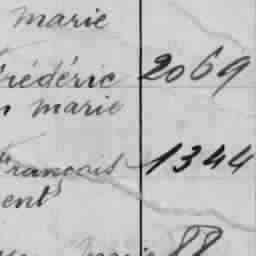 marie
frédéric 2069
marie
François 1344
ent
88